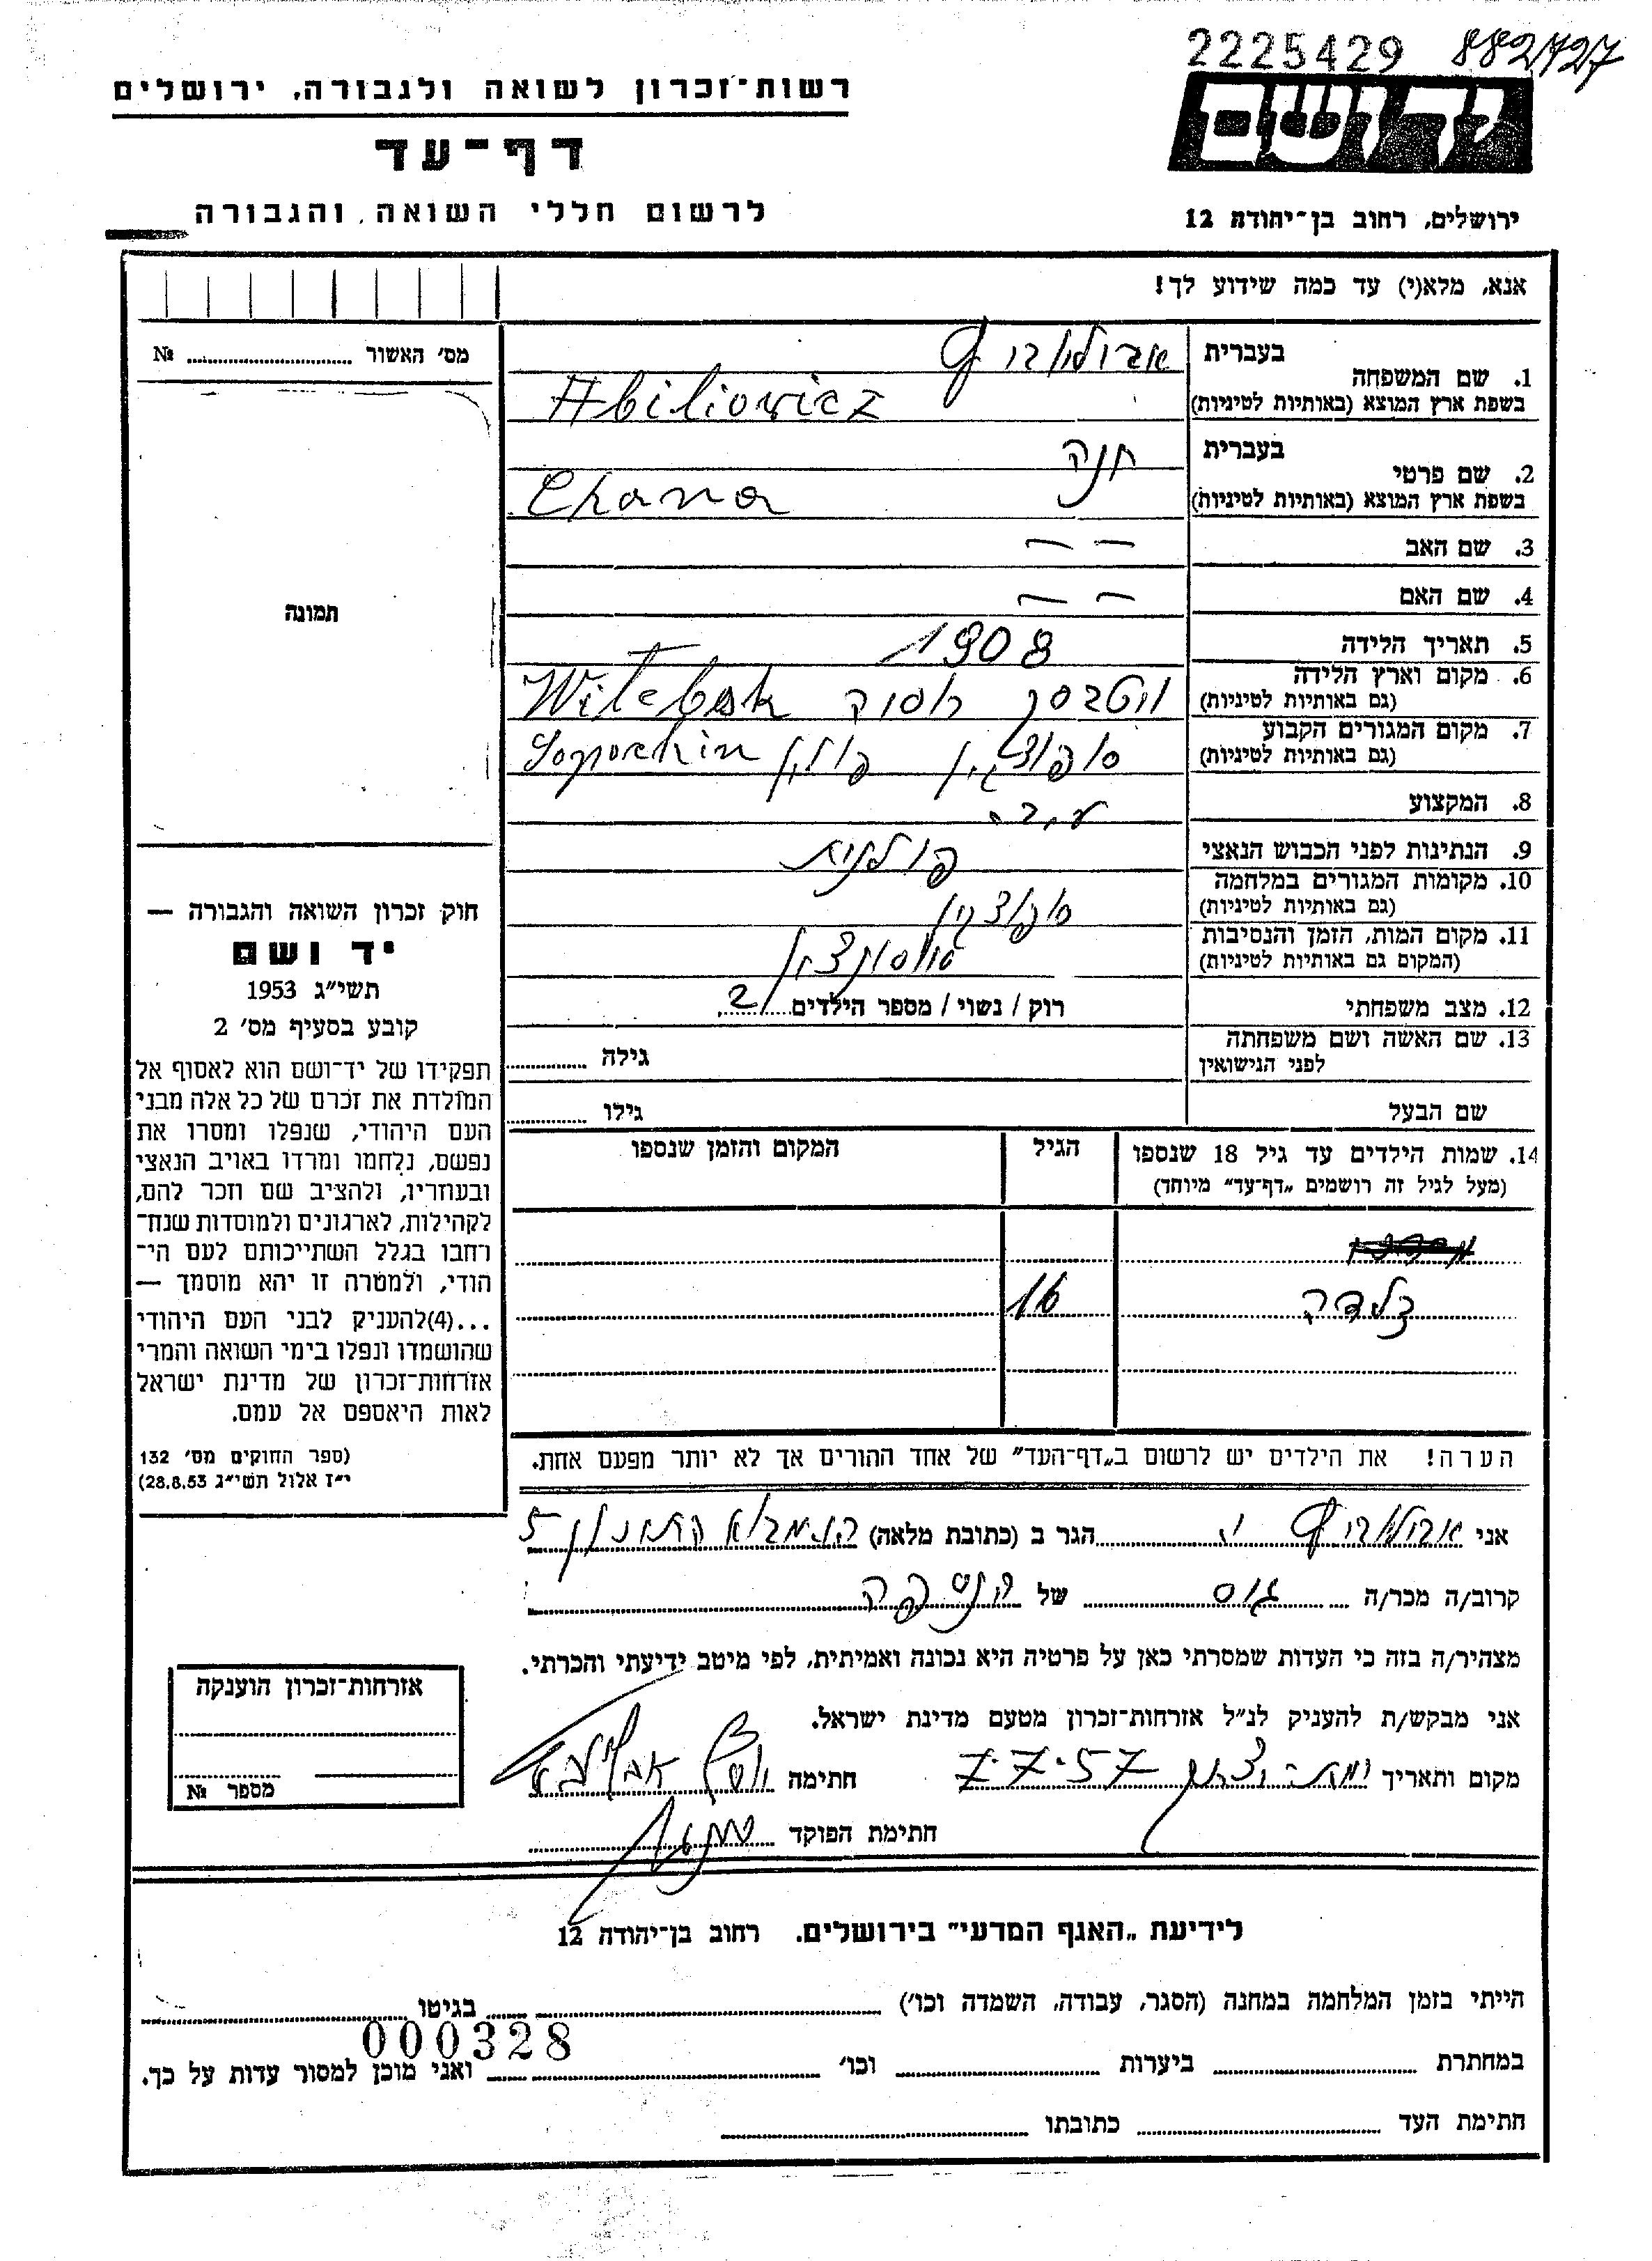 2225429 882427
רשות־זכרון לשואה ולגבורה, ירושלים
יד ושם
דף־עד
לרשום חללי השואה והגבורה
ירושלים, רחוב בן־יהודה 12
אנא, מלא(י) עד כמה שידוע לך!
מס׳ האשור № ........
1. שם המשפחה
בעברית אבילוביץ
בשפת ארץ המוצא (באותיות לטיניות) Abiliowicz
2. שם פרטי
בעברית חנה
בשפת ארץ המוצא (באותיות לטיניות) Chana
3. שם האב — —
4. שם האם — —
5. תאריך הלידה 1908
6. מקום וארץ הלידה
(גם באותיות לטיניות) ויטבסק רוסיה Witebsk
7. מקום המגורים הקבוע
(גם באותיות לטיניות) סופוצקין פולין Sopockin
8. המקצוע
9. הנתינות לפני הכבוש הנאצי פולנית
10. מקומות המגורים במלחמה
(גם באותיות לטיניות) סופוצקין
11. מקום המות, הזמן והנסיבות
(המקום גם באותיות לטיניות)
12. מצב משפחתי רוק / נשוי / מספר הילדים 2
13. שם האשה ושם משפחתה
לפני הנישואין גילה ........
שם הבעל גילו ........
14. שמות הילדים עד גיל 18 שנספו
(מעל לגיל זה רושמים „דף־עד״ מיוחד)
הגיל
המקום והזמן שנספו
זלדה 16
הערה! את הילדים יש לרשום ב„דף־העד״ של אחד ההורים אך לא יותר מפעם אחת.
תמונה
חוק זכרון השואה והגבורה —
יד ושם
תשי״ג 1953
קובע בסעיף מס׳ 2
תפקידו של יד־ושם הוא לאסוף אל
המולדת את זכרם של כל אלה מבני
העם היהודי, שנפלו ומסרו את
נפשם, נלחמו ומרדו באויב הנאצי
ובעוזריו, ולהציב שם וזכר להם,
לקהילות, לארגונים ולמוסדות שנח־
רחבו בגלל השתייכותם לעם הי־
הודי, ולמטרה זו יהא מוסמך —
...(4)להעניק לבני העם היהודי
שהושמדו ונפלו בימי השואה והמרי
אזרחות־זכרון של מדינת ישראל
לאות היאספם אל עמם.
(ספר החוקים מס׳ 132
י״ז אלול תשי״ג 28.8.53)
אני אבילוביץ י. הגר ב (כתובת מלאה) 5
קרוב/ה מכר/ה גיס של הנספה
מצהיר/ה בזה כי העדות שמסרתי כאן על פרטיה היא נכונה ואמיתית, לפי מיטב ידיעתי והכרתי.
אני מבקש/ת להעניק לנ״ל אזרחות־זכרון מטעם מדינת ישראל.
מקום ותאריך 7-7-57 חתימה
חתימת הפוקד
אזרחות־זכרון הוענקה
מספר №
לידיעת „האגף המדעי״ בירושלים. רחוב בן־יהודה 12
הייתי בזמן המלחמה במחנה (הסגר, עבודה, השמדה וכו׳) ........ בגיטו ........
000328
במחתרת ........ ביערות ........ וכו׳ ........ ואני מוכן למסור עדות על כך.
חתימת העד ........ כתובתו ........